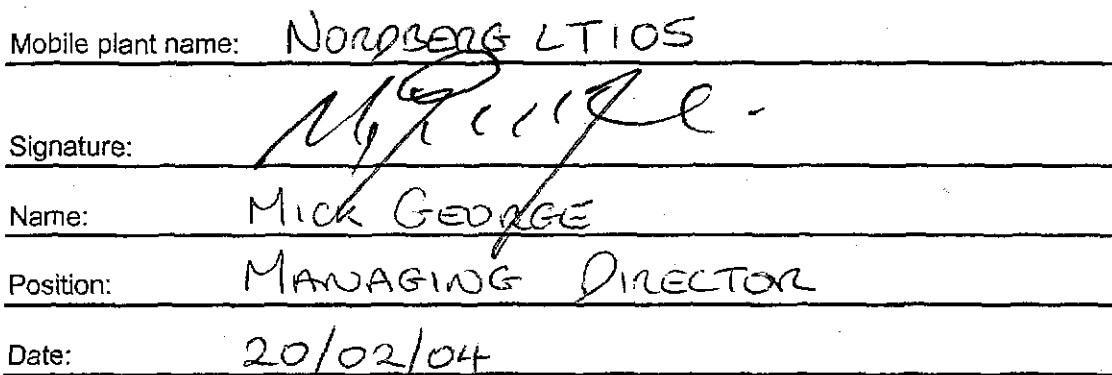 Mobile plant name: NORDBERG LT105
Signature:
Name: MICK GEORGE
Position: MANAGING DIRECTOR
Date: 20/02/04